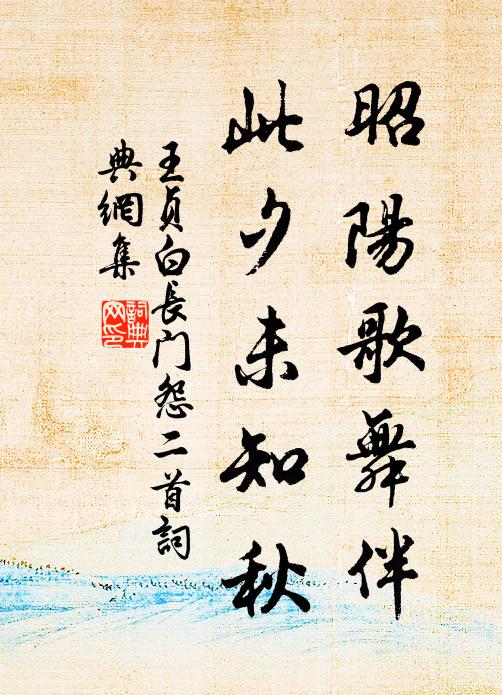 昭陽歌舞伴
此夕未知秋
王貞白長门怨二首詞
典網集
詞典
网印